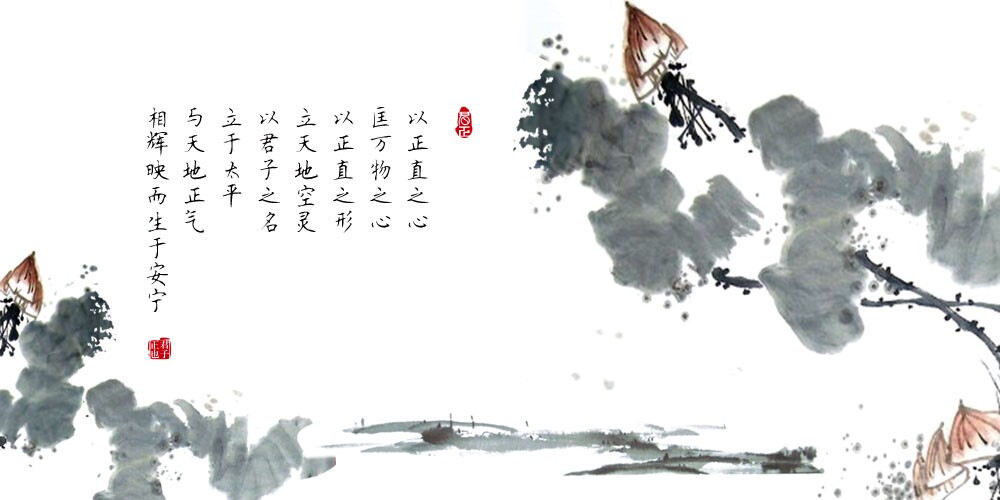 以正直之心
匡万物之心
以正直之形
立天地空灵
以君子之名
立于太平
与天地正气
相辉映而生于安宁
君子
正也